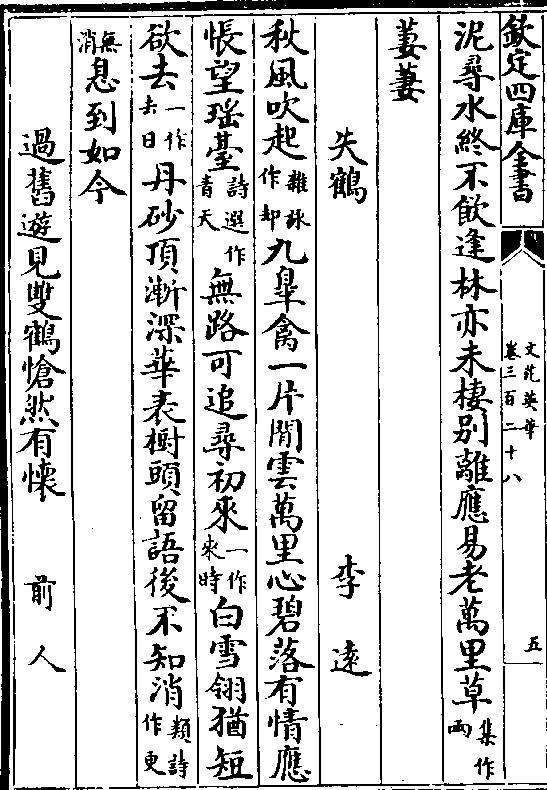 欽定四庫全書
文苑英華
卷三百二十八
五
泥尋水終不飲逢林亦未棲别離應易老萬里草集作兩
萋萋
失鶴 李遠
秋風吹起雜詠作却九臯禽一片閒雲萬里心碧落有情應
悵望瑶臺詩選作青天無路可追尋初來一作來時白雪翎猶短
欲去一作去日丹砂頂漸深華表樹頭留語後不知消類詩作更
無消息到如今
過舊遊見雙鶴愴然有懷 前人